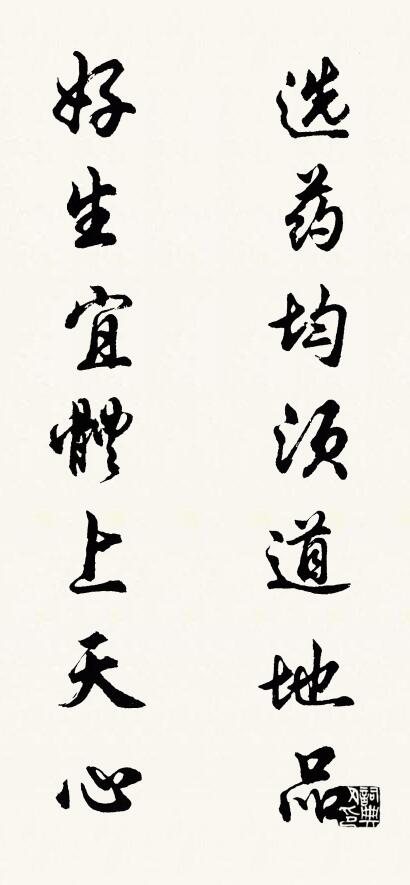 选药均须道地品
好生宜體上天心
詞典